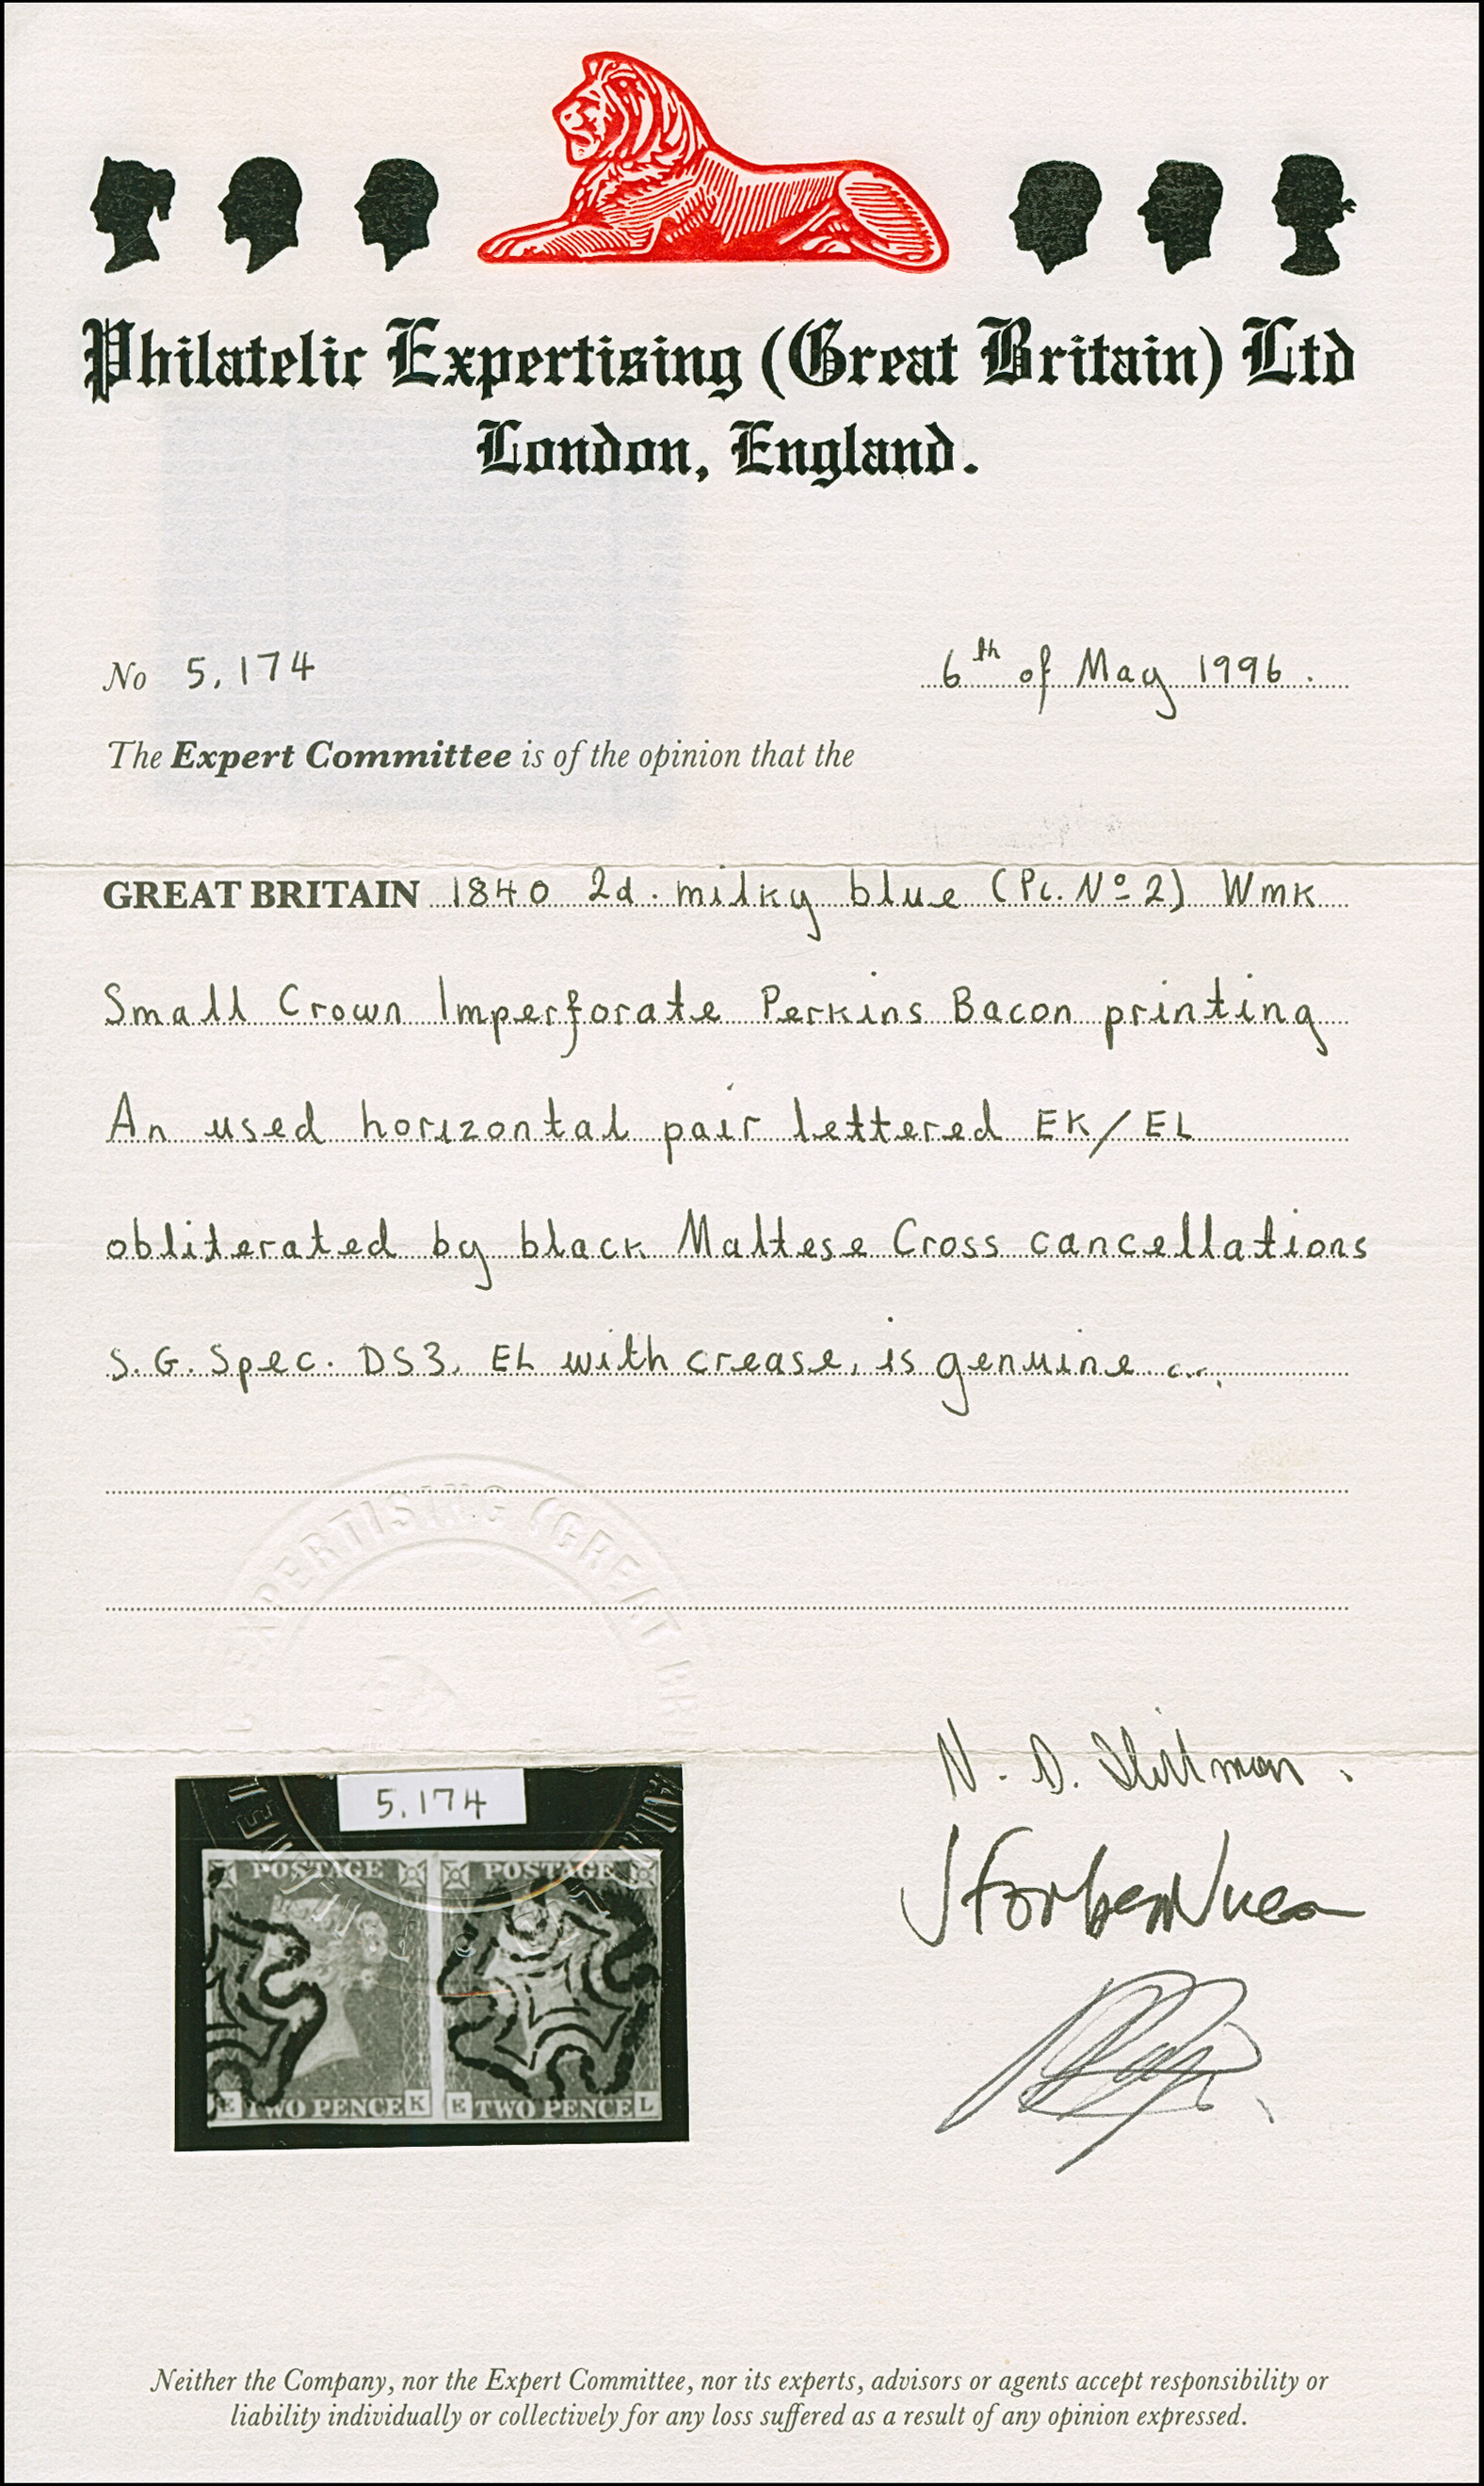 Philatelic Expertising (Great Britain) Ltd
London, England.
No 5,174
6th of May 1996.
The Expert Committee is of the opinion that the
GREAT BRITAIN 1840 2d. milky blue (Pl. Nº 2) Wmk
Small Crown Imperforate Perkins Bacon printing
An used horizontal pair lettered EK/EL
obliterated by black Maltese Cross cancellations
S.G. Spec. DS3, EL with crease, is genuine
EXPERTISING (GREAT BR
5,174
POSTAGE POSTAGE
E TWO PENCE K E TWO PENCE L
N. D.
Neither the Company, nor the Expert Committee, nor its experts, advisors or agents accept responsibility or
liability individually or collectively for any loss suffered as a result of any opinion expressed.